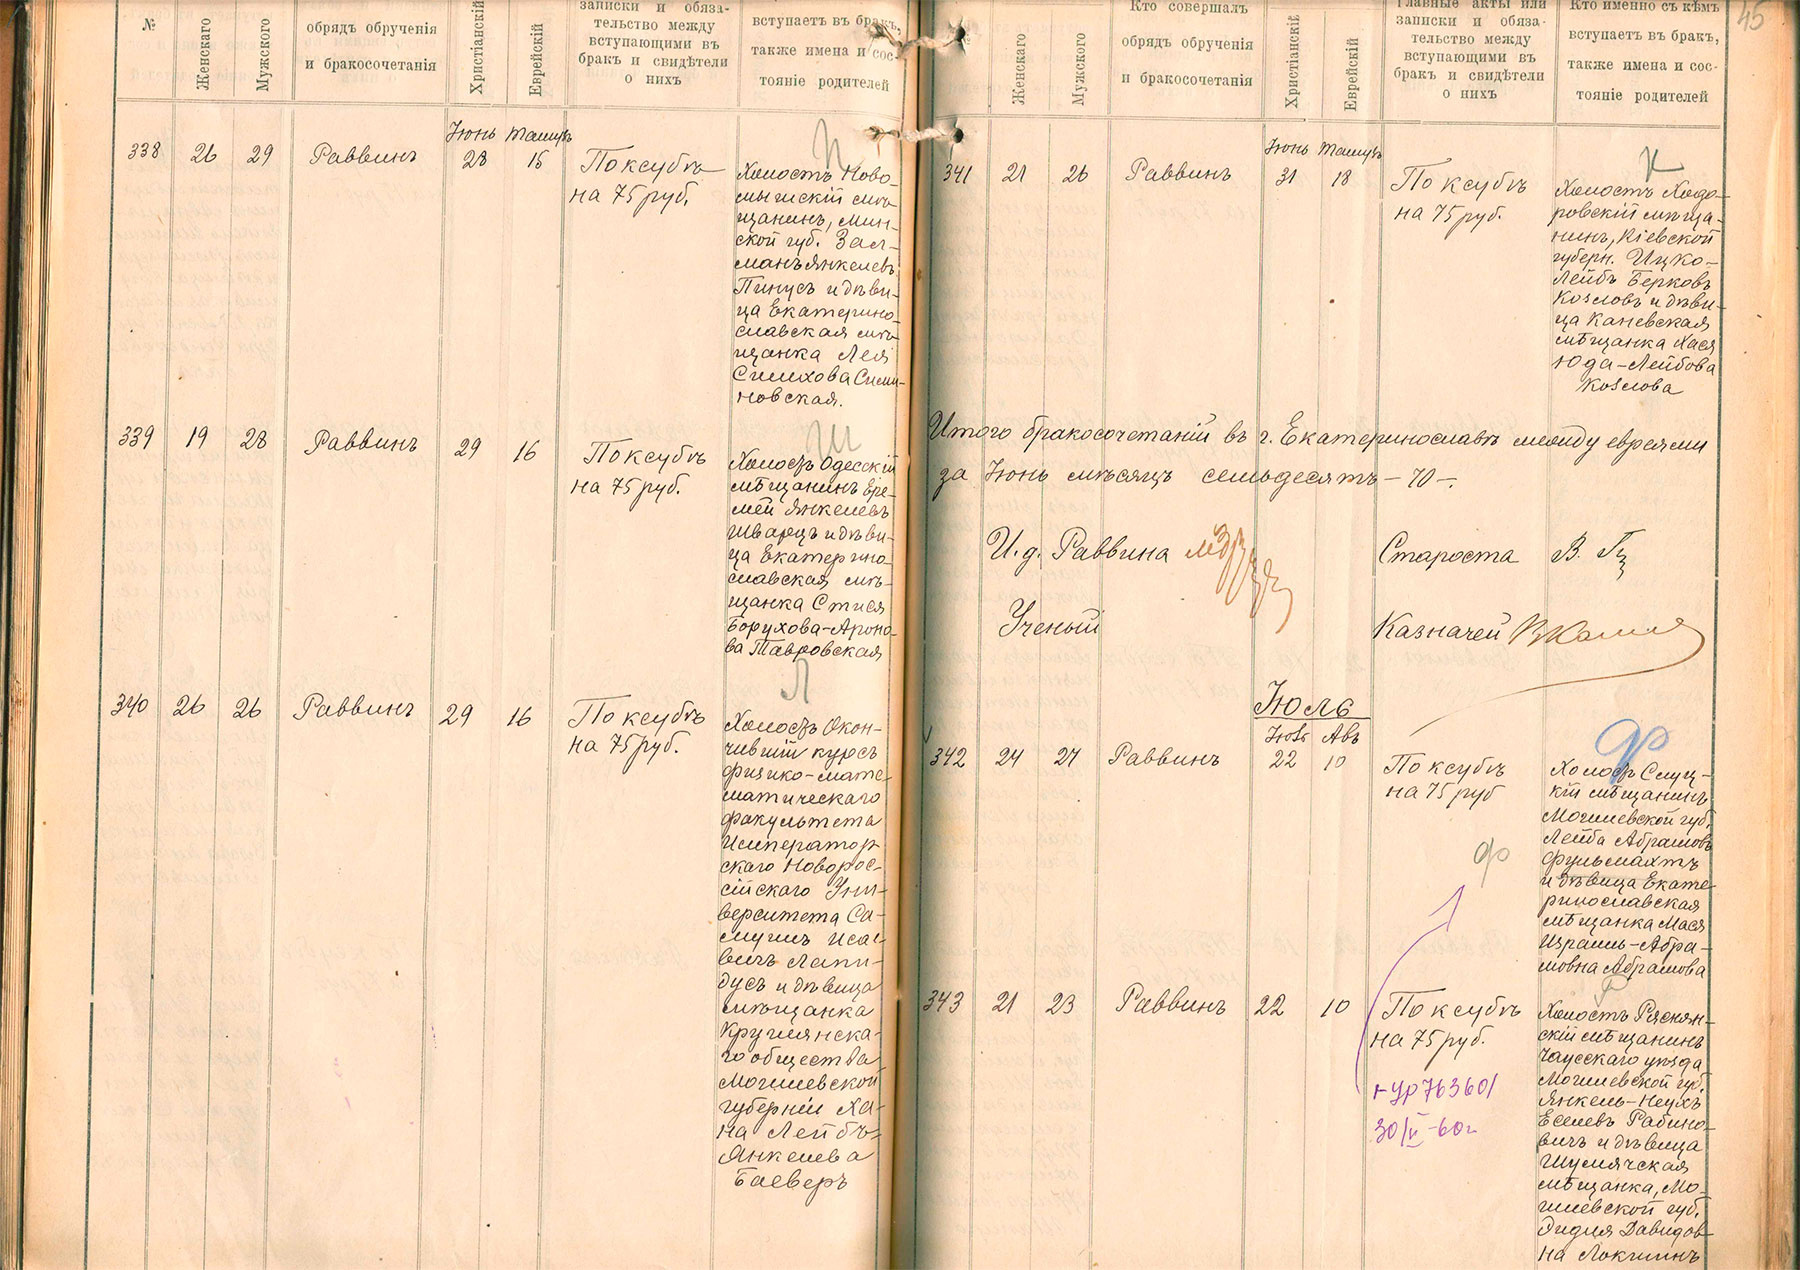 №
Женскаго
Мужского
обрядъ обрученія
и бракосочетанія
Христіанскій
Еврейскій
записки и обяза-
тельство между
вступающими въ
бракъ и свидѣтели
о нихъ
вступаетъ въ бракъ,
также имена и сос-
тояніе родителей
Іюнь Тамузъ
338 26 29 Раввинъ 28 15 По ксубѣ
на 75 руб.
П
Холостъ Ново-
мышскій мѣ-
щанинъ, Мин-
ской губ. Зал-
манъ Янкелевъ
Пинусъ и дѣви-
ца Екатерино-
славская мѣ-
щанка Лея
Симхова Сими-
новская.
339 19 28 Раввинъ 29 16 По ксубѣ
на 75 руб.
Ш
Холостъ Одесскій
мѣщанинъ Ере-
мей Янкелевъ
Шварцъ и дѣви-
ца Екатерино-
славская мѣ-
щанка Стися
Борухова-Ароно-
ва Тавровская
340 26 26 Раввинъ 29 16 По ксубѣ
на 75 руб.
Л
Холостъ Окон-
чившій курсъ
физико-мате-
матическаго
факультета
Император-
скаго Новорос-
сійскаго Уни-
верситета Са-
муилъ Исае-
вичъ Лапи-
дусъ и дѣвица
мѣщанка
Круглянска-
го общества
Могилевской
губерніи Ха-
на Лейбъ-
Янкелева
Баеверъ
45
Женскаго
Мужского
Кто совершалъ
обрядъ обрученія
и бракосочетанія
Христіанскій
Еврейскій
Главные акты или
записки и обяза-
тельство между
вступающими въ
бракъ и свидѣтели
о нихъ
Кто именно съ кѣмъ
вступаетъ въ бракъ,
также имена и сос-
тояніе родителей
Іюнь Тамузъ
341 21 26 Раввинъ 31 18 По ксубѣ
на 75 руб.
К
Холостъ Ходо-
ровскій мѣща-
нинъ, Кіевской
губерн. Ицко-
Лейбъ Берковъ
Козловъ и дѣви-
ца Каневская
мѣщанка Хася
Юда-Лейбова
Козлова
Итого бракосочетаній въ г. Екатеринославѣ между евреями
за Іюнь мѣсяцъ семьдесятъ - 70 -.
И. д. Раввина
Староста В. Гц
Ученый
Казначей
Іюль
Іюль Авъ
342 24 27 Раввинъ 22 10 По ксубѣ
на 75 руб
Ф
Холостъ Слуц-
кій мѣщанинъ
Могилевской губ.
Лейба Абрамовъ
Фульмахтъ
и дѣвица Екате-
ринославская
мѣщанка Мася
Израиль-Абра-
мовна Абрамова
Ф
343 21 23 Раввинъ 22 10 По ксубѣ
на 75 руб.
763601
30/V-60г
Р
Холостъ Рясня-
скій мѣщанинъ
Чаусскаго уѣзда
Могилевской губ.
Янкель-Неухъ
Еселевъ Рабино-
вичъ и дѣвица
Шумячская
мѣщанка, Мо-
гилевской губ.
Эидля Давидов-
на Локшинъ